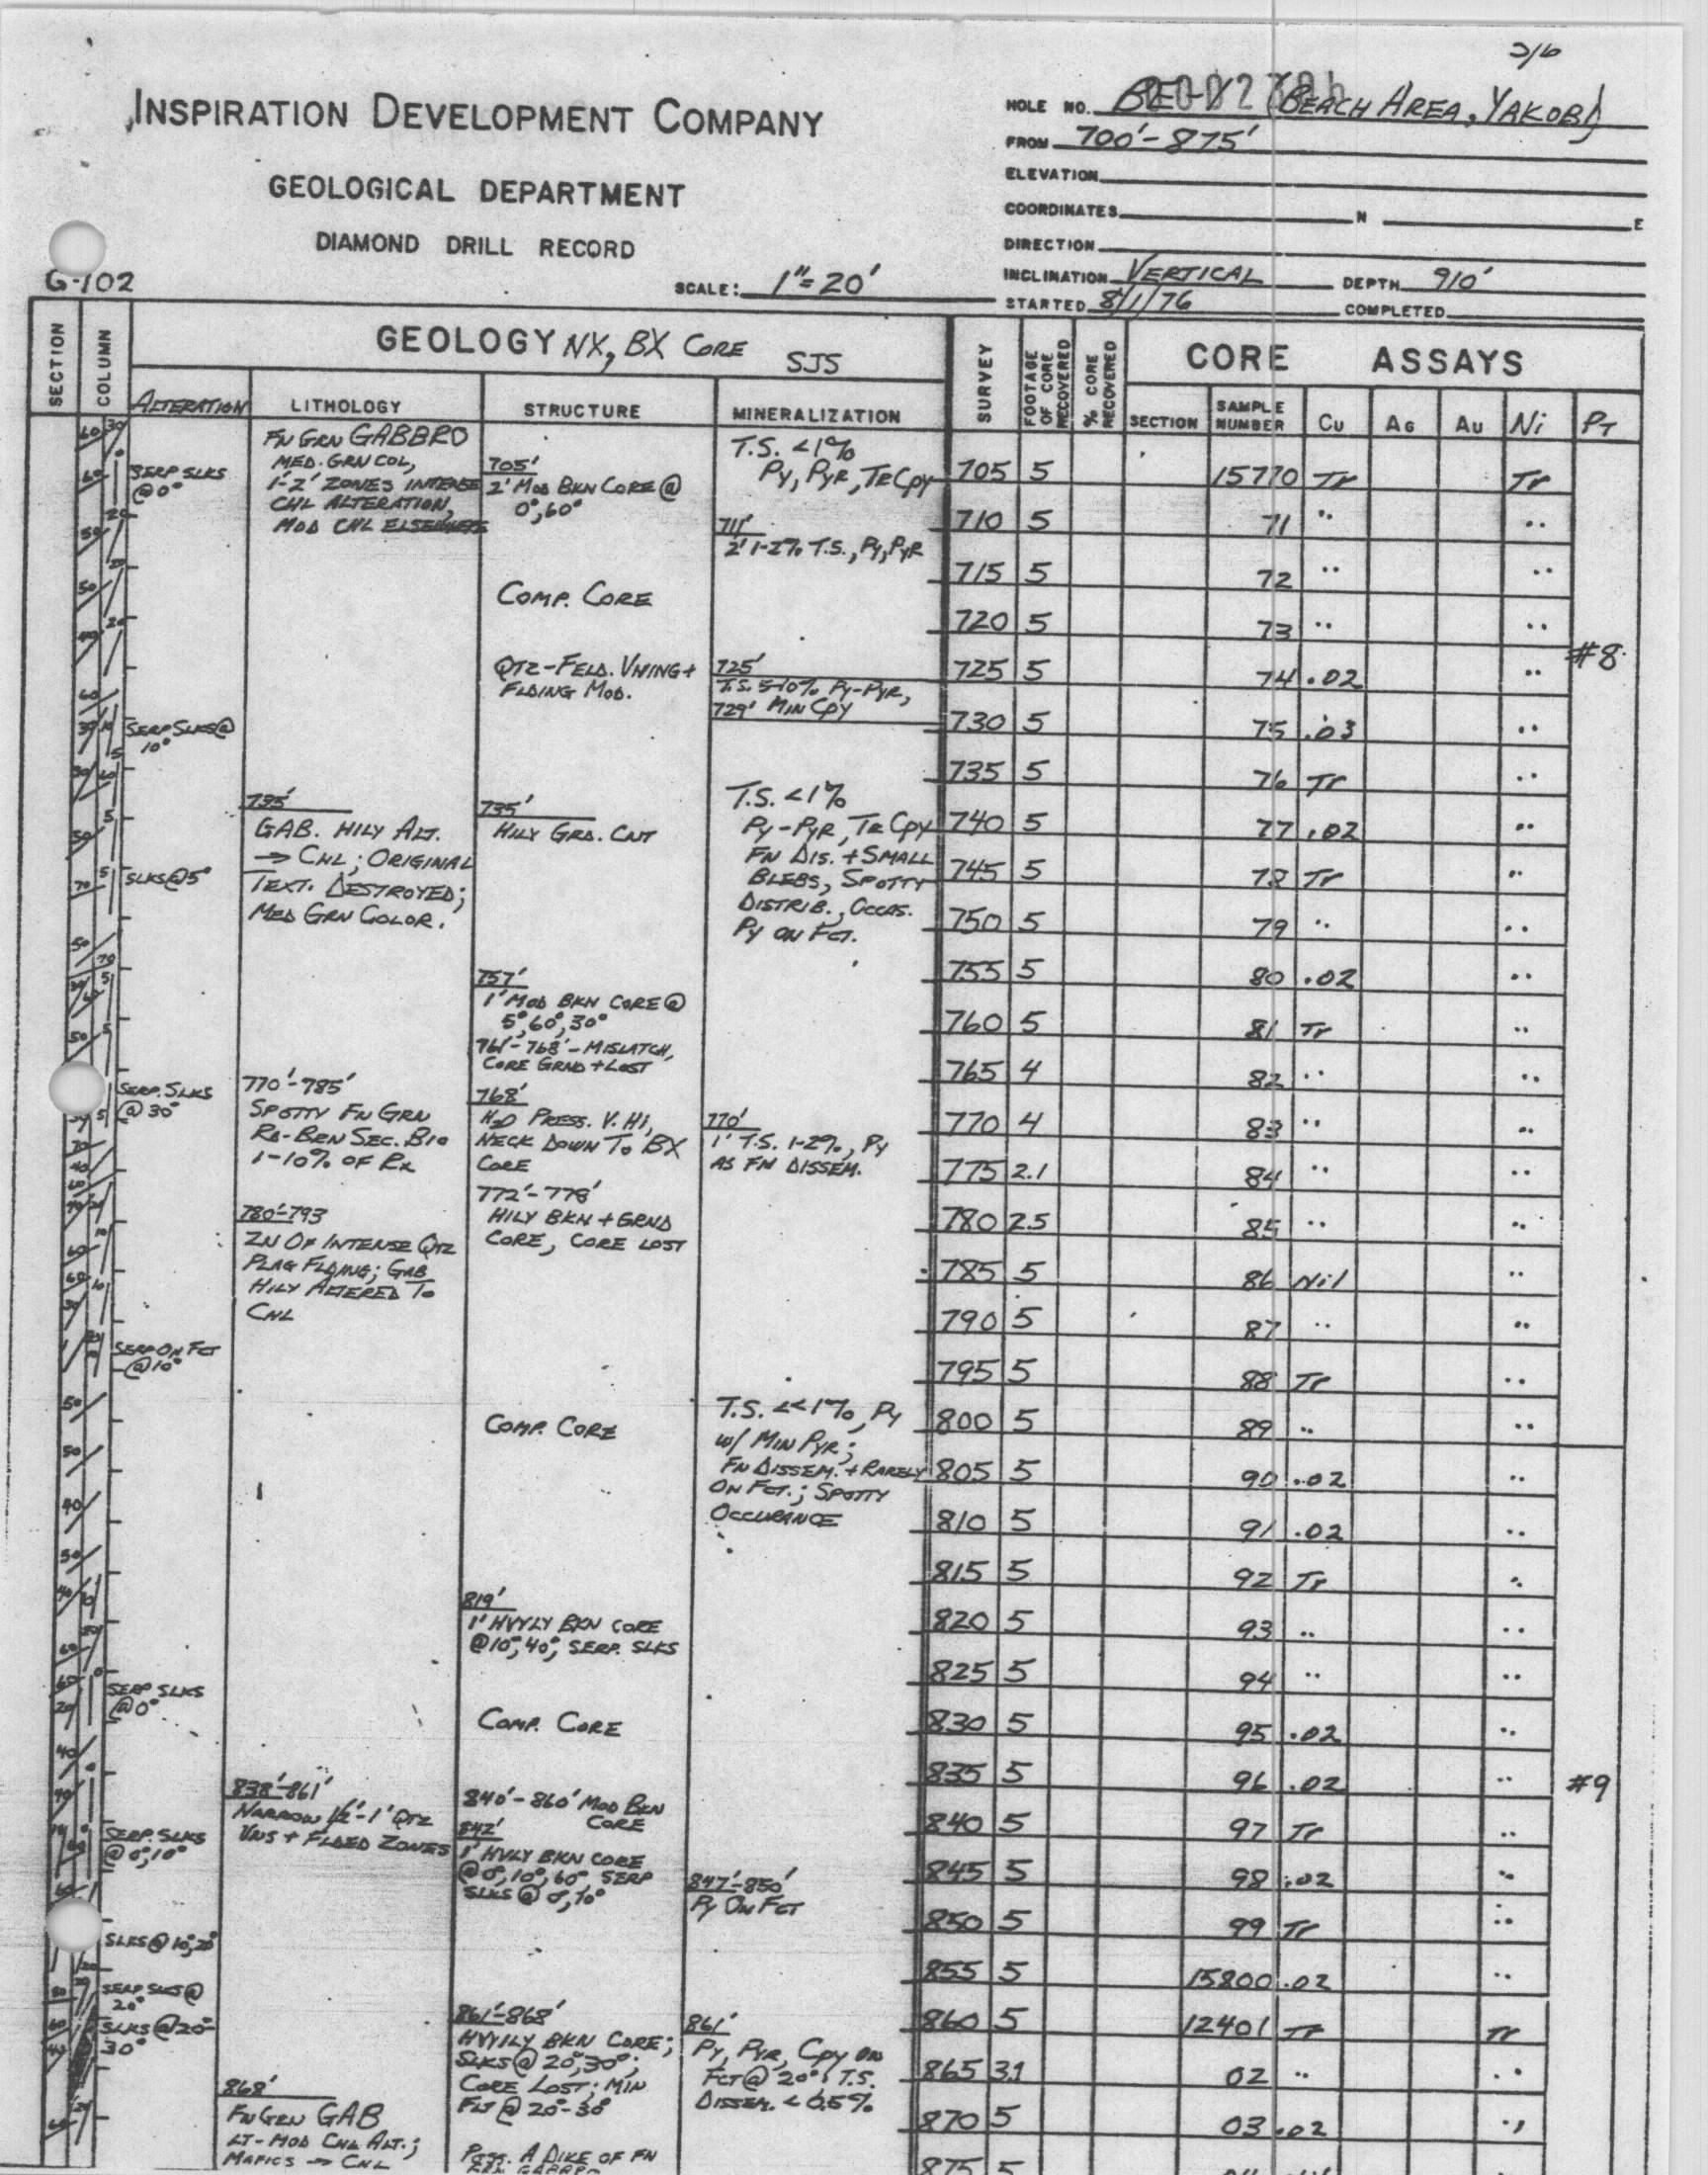 INSPIRATION DEVELOPMENT COMPANY
GEOLOGICAL DEPARTMENT
DIAMOND DRILL RECORD
G-102
SCALE: 1"=20'
HOLE NO. (BEACH AREA, YAKOBI)
FROM 700'-875'
ELEVATION
COORDINATES N E
DIRECTION
INCLINATION VERTICAL DEPTH 910'
STARTED 8/1/76 COMPLETED
SECTION
COLUMN
GEOLOGY NX, BX CORE SJS
ALTERATION LITHOLOGY STRUCTURE MINERALIZATION
SURVEY
FOOTAGE OF CORE RECOVERED
% CORE RECOVERED
CORE ASSAYS
SECTION SAMPLE NUMBER Cu AG AU Ni PT
SERP SLKS
@ 0°
SERP SLKS @
10°
SLKS @ 5°
SERP. SLKS
@ 30°
SERP ON FCT
@ 10°
SERP SLKS
@ 0°
SERP. SLKS
@ 0°, 10°
SLKS @ 10°, 20°
SERP SLKS @
20°
SLKS @ 20-
30°
FN GRN GABBRO
MED. GRN COL,
1'-2' ZONES INTENSE
CHL ALTERATION,
MOD CHL ELSEWHERE
735'
GAB. HILY ALT.
→ CHL; ORIGINAL
TEXT. DESTROYED;
MED GRN COLOR.
770'-785'
SPOTTY FN GRN
RD-BRN SEC. BIO
1-10% OF RX
780'-793
ZN OF INTENSE QTZ
PLAG FLDING; GAB
HILY ALTERED TO
CHL
838'-861'
NARROW 1/2'-1' QTZ
VNS + FLDED ZONES
868'
FN GRN GAB
LT-MOD CHL ALT.;
MAFICS → CHL
705'
2' MOD BKN CORE @
0°, 60°
COMP. CORE
QTZ-FELD. VNING +
FLDING MOD.
735'
HILY GRD. CNT
757'
1' MOD BKN CORE @
5°, 60°, 30°
761'-768' - MISLATCH,
CORE GRND + LOST
768'
H2O PRESS. V. HI,
NECK DOWN TO BX
CORE
772'-778'
HILY BKN + GRND
CORE, CORE LOST
COMP. CORE
819'
1' HVYLY BKN CORE
@ 10°, 40°, SERP. SLKS
COMP. CORE
840'-860' MOD BKN
CORE
842'
1' HVLY BKN CORE
@ 0°, 10°, 60° SERP
SLKS @ 0°, 10°
861'-868'
HVYILY BKN CORE;
SLKS @ 20°, 30°;
CORE LOST; MIN
FLT @ 20°-30°
POSS. A DIKE OF FN
T.S. <1%
PY, PYR, TR CPY
711'
2' 1-2% T.S., PY, PYR
725'
T.S. 5-10% PY-PYR,
729' MIN CPY
T.S. <1%
PY-PYR, TR CPY
FN DIS. + SMALL
BLEBS, SPOTTY
DISTRIB., OCCAS.
PY ON FCT.
770'
1' T.S. 1-2%, PY
AS FN DISSEM.
T.S. <<1%, PY
W/ MIN PYR;
FN DISSEM. + RARELY
ON FCT.; SPOTTY
OCCURANCE
847'-850'
PY ON FCT
861'
PY, PYR, CPY ON
FCT @ 20°; T.S.
DISSEM. < 0.5%
705 5 15770 Tr Tr
710 5 71 " "
715 5 72 " "
720 5 73 " "
#8
725 5 74 .02 "
730 5 75 .03 "
735 5 76 Tr "
740 5 77 .02 "
745 5 78 Tr "
750 5 79 " "
755 5 80 .02 "
760 5 81 Tr "
765 4 82 " "
770 4 83 " "
775 2.1 84 " "
780 2.5 85 " "
785 5 86 Nil "
790 5 87 " "
795 5 88 Tr "
800 5 89 " "
805 5 90 .02 "
810 5 91 .02 "
815 5 92 Tr "
820 5 93 " "
825 5 94 " "
830 5 95 .02 "
835 5 96 .02 "
#9
840 5 97 Tr "
845 5 98 .02 "
850 5 99 Tr "
855 5 15800 .02 "
860 5 12401 Tr Tr
865 3.1 02 " "
870 5 03 .02 "
875 5